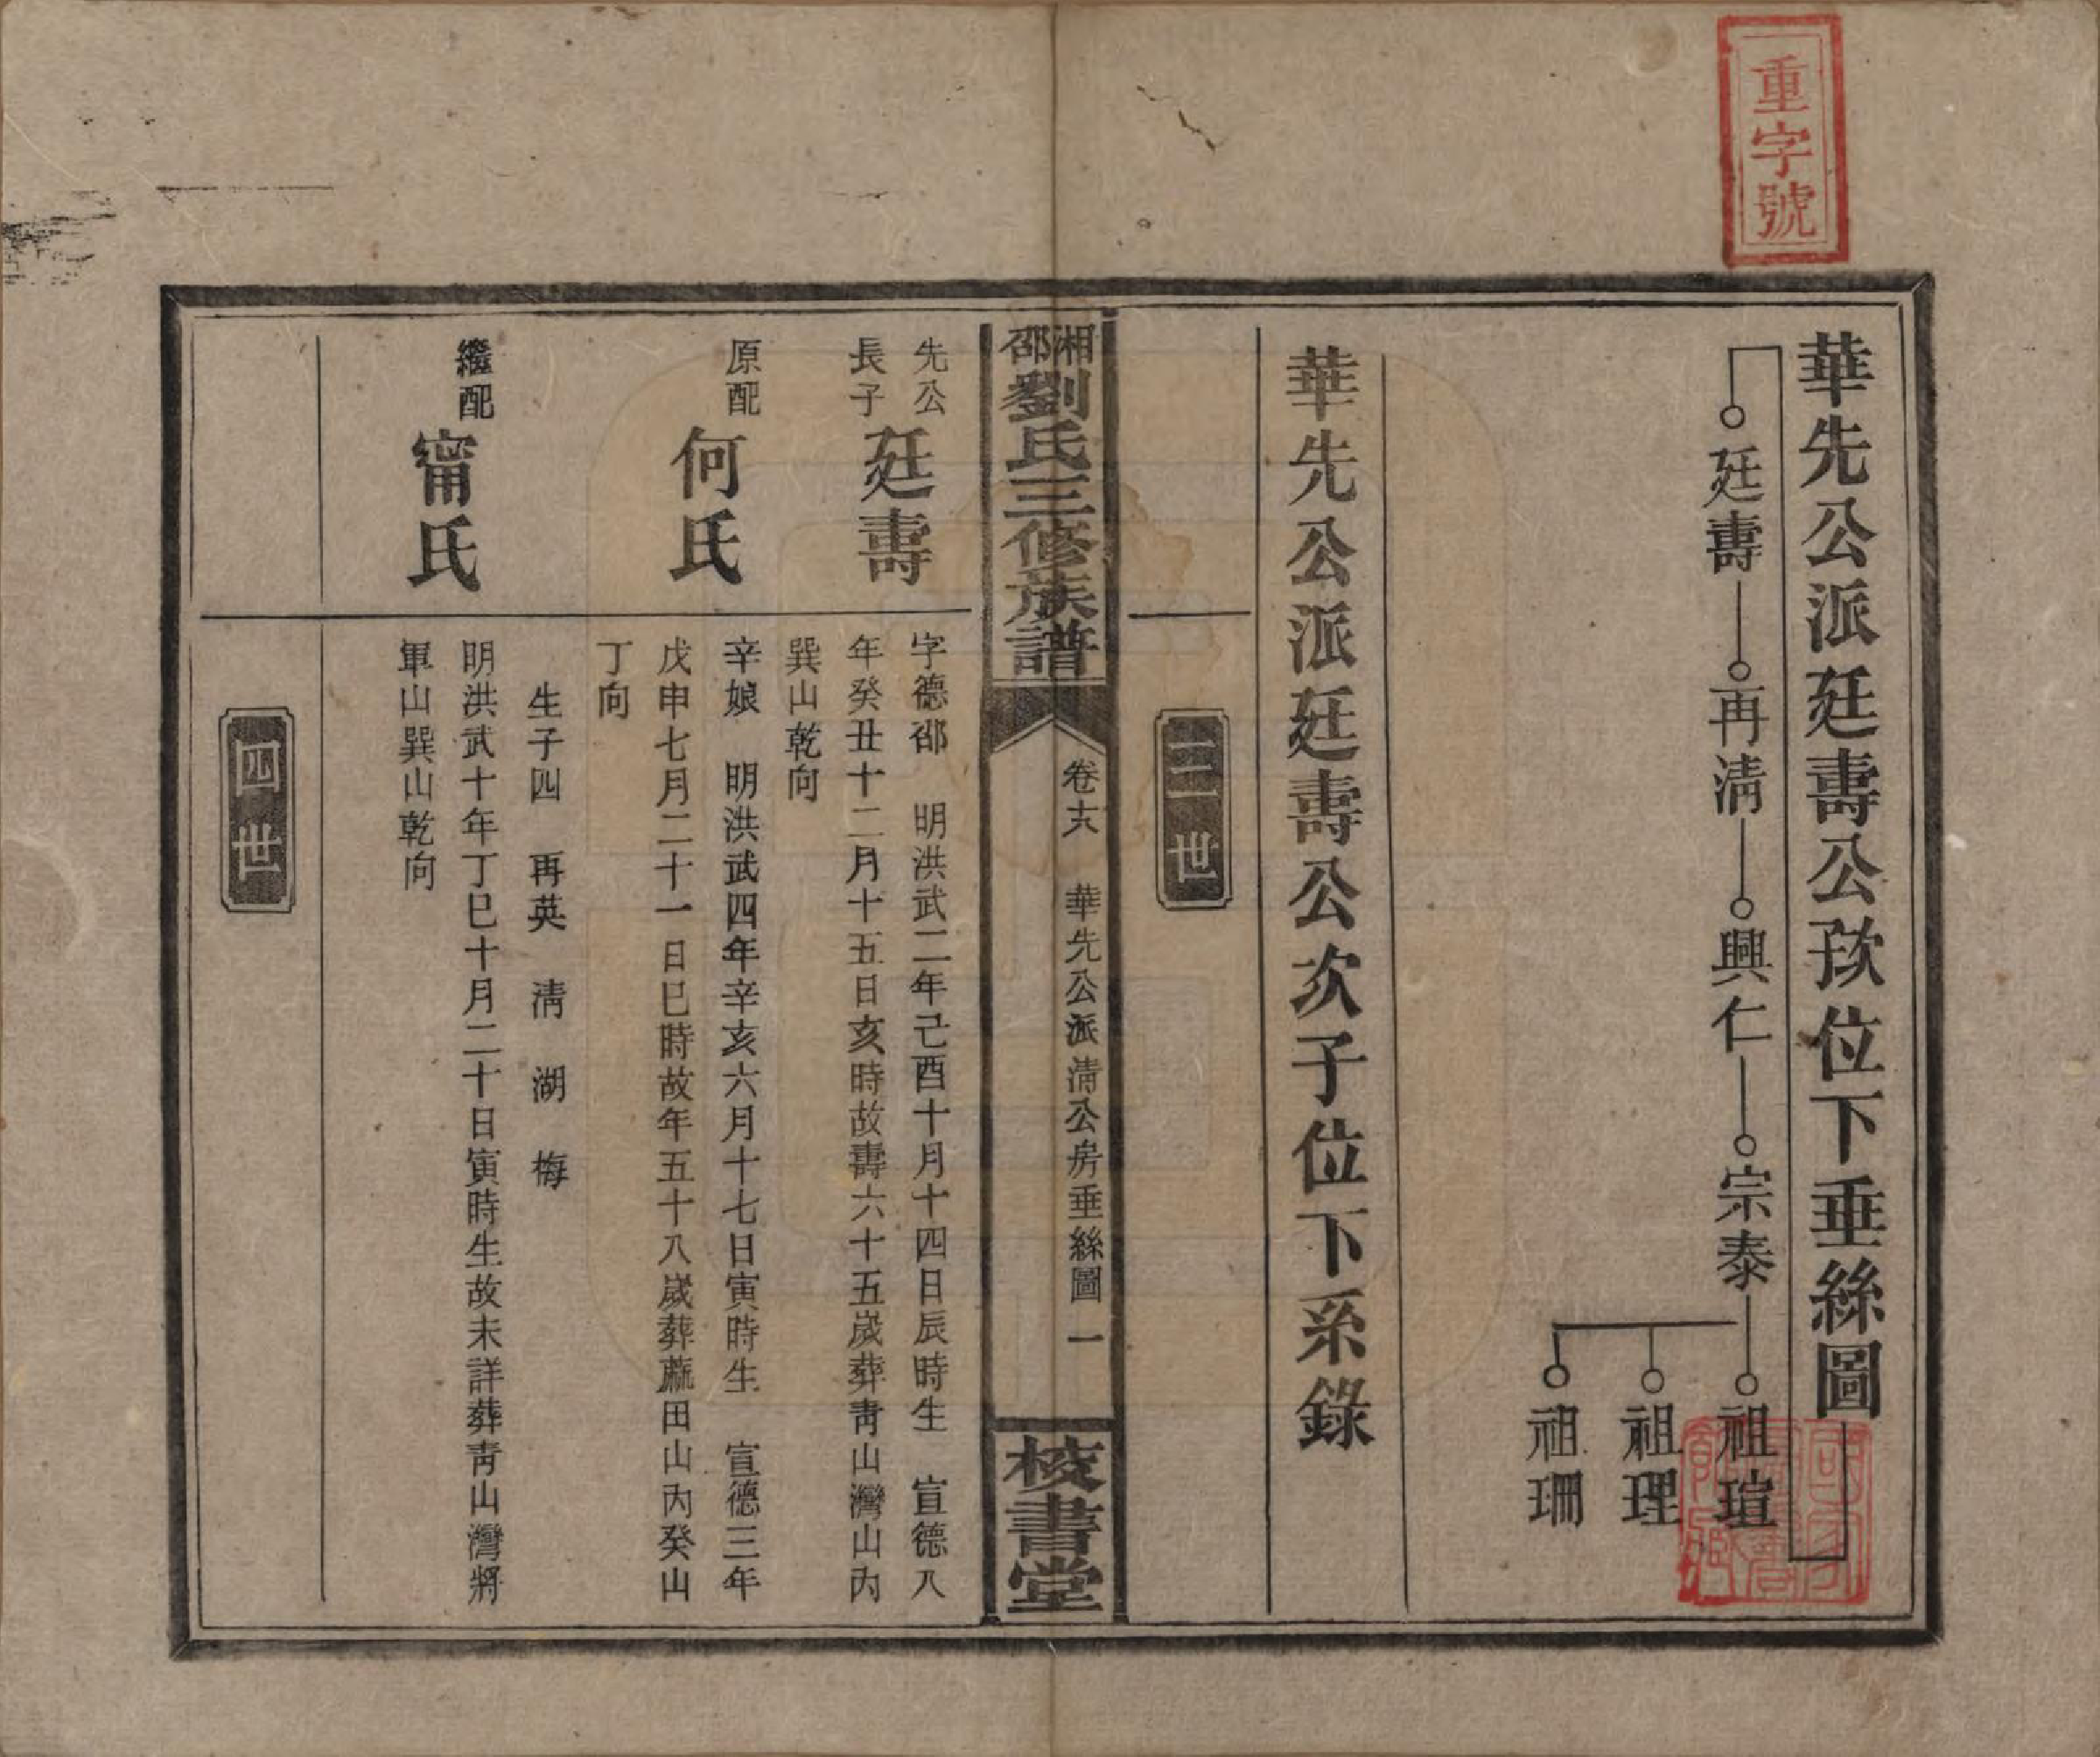 重字號
華先公派廷壽公次位下垂絲圖
廷壽 再清 興仁 宗泰 祖瑄
祖理
祖珊
華先公派廷壽公次子位下系錄
三世
湘邵劉氏三修族譜
卷十六 華先公派清公房垂絲圖 一
校書堂
先公長子 廷壽
字德邵 明洪武二年己酉十月十四日辰時生 宣德八
年癸丑十二月十五日亥時故壽六十五歲葬靑山灣山內
巽山乾向
原配 何氏
辛娘 明洪武四年辛亥六月十七日寅時生 宣德三年
戊申七月二十一日巳時故年五十八歲葬蔴田山內癸山
丁向
生子四 再英 清 湖 梅
繼配 甯氏
明洪武十年丁巳十月二十日寅時生故未詳葬靑山灣將
軍山巽山乾向
四世